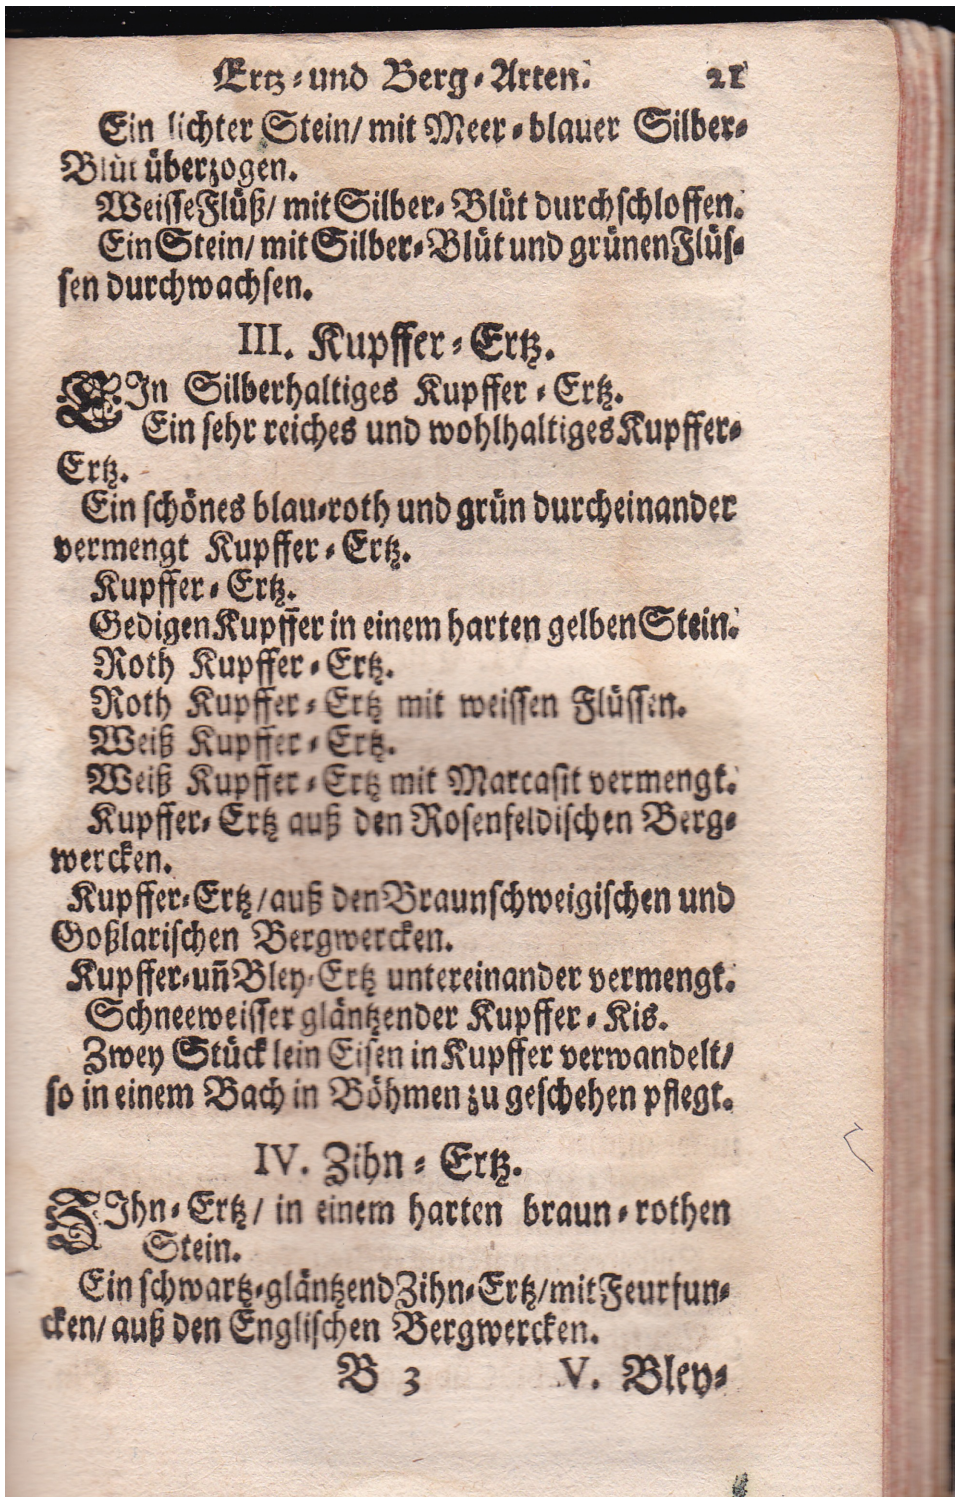 Ertz-und Berg-Arten. 21
Ein lichter Stein/ mit Meer-blauer Silber-
Blüt überzogen.
Weisse Flüß/ mit Silber-Blüt durchschloffen.
Ein Stein/ mit Silber-Blüt und grünen Flüs-
sen durchwachsen.
III. Kupffer-Ertz.
EIn Silberhaltiges Kupffer-Ertz.
Ein sehr reiches und wohlhaltiges Kupffer-
Ertz.
Ein schönes blau-roth und grün durcheinander
vermengt Kupffer-Ertz.
Kupffer-Ertz.
Gedigen Kupffer in einem harten gelben Stein.
Roth Kupffer-Ertz.
Roth Kupffer-Ertz mit weissen Flüssen.
Weiß Kupffer-Ertz.
Weiß Kupffer-Ertz mit Marcasit vermengt.
Kupffer-Ertz auß den Rosenfeldischen Berg-
wercken.
Kupffer-Ertz/auß den Braunschweigischen und
Goßlarischen Bergwercken.
Kupffer-uñ Bley-Ertz untereinander vermengt.
Schneeweisser gläntzender Kupffer-Kis.
Zwey Stücklein Eisen in Kupffer verwandelt/
so in einem Bach in Böhmen zu geschehen pflegt.
IV. Zihn-Ertz.
ZIhn-Ertz/ in einem harten braun-rothen
Stein.
Ein schwartz-gläntzend Zihn-Ertz/mit Feurfun-
cken/ auß den Englischen Bergwercken.
B 3 V. Bley-